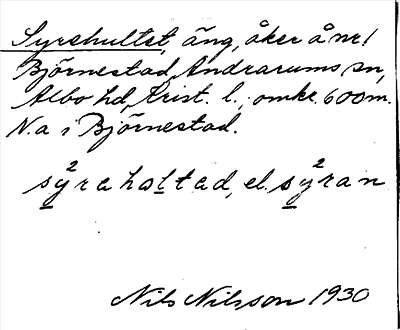 Syrehultet, äng, åker å nr 1
Björnestad, Andrarums sn,
Albo hd, Krist. l.; omkr. 600 m.
N.a i Björnestad.
sy²raholtad, el. sy²ran
Nils Nilsson 1930